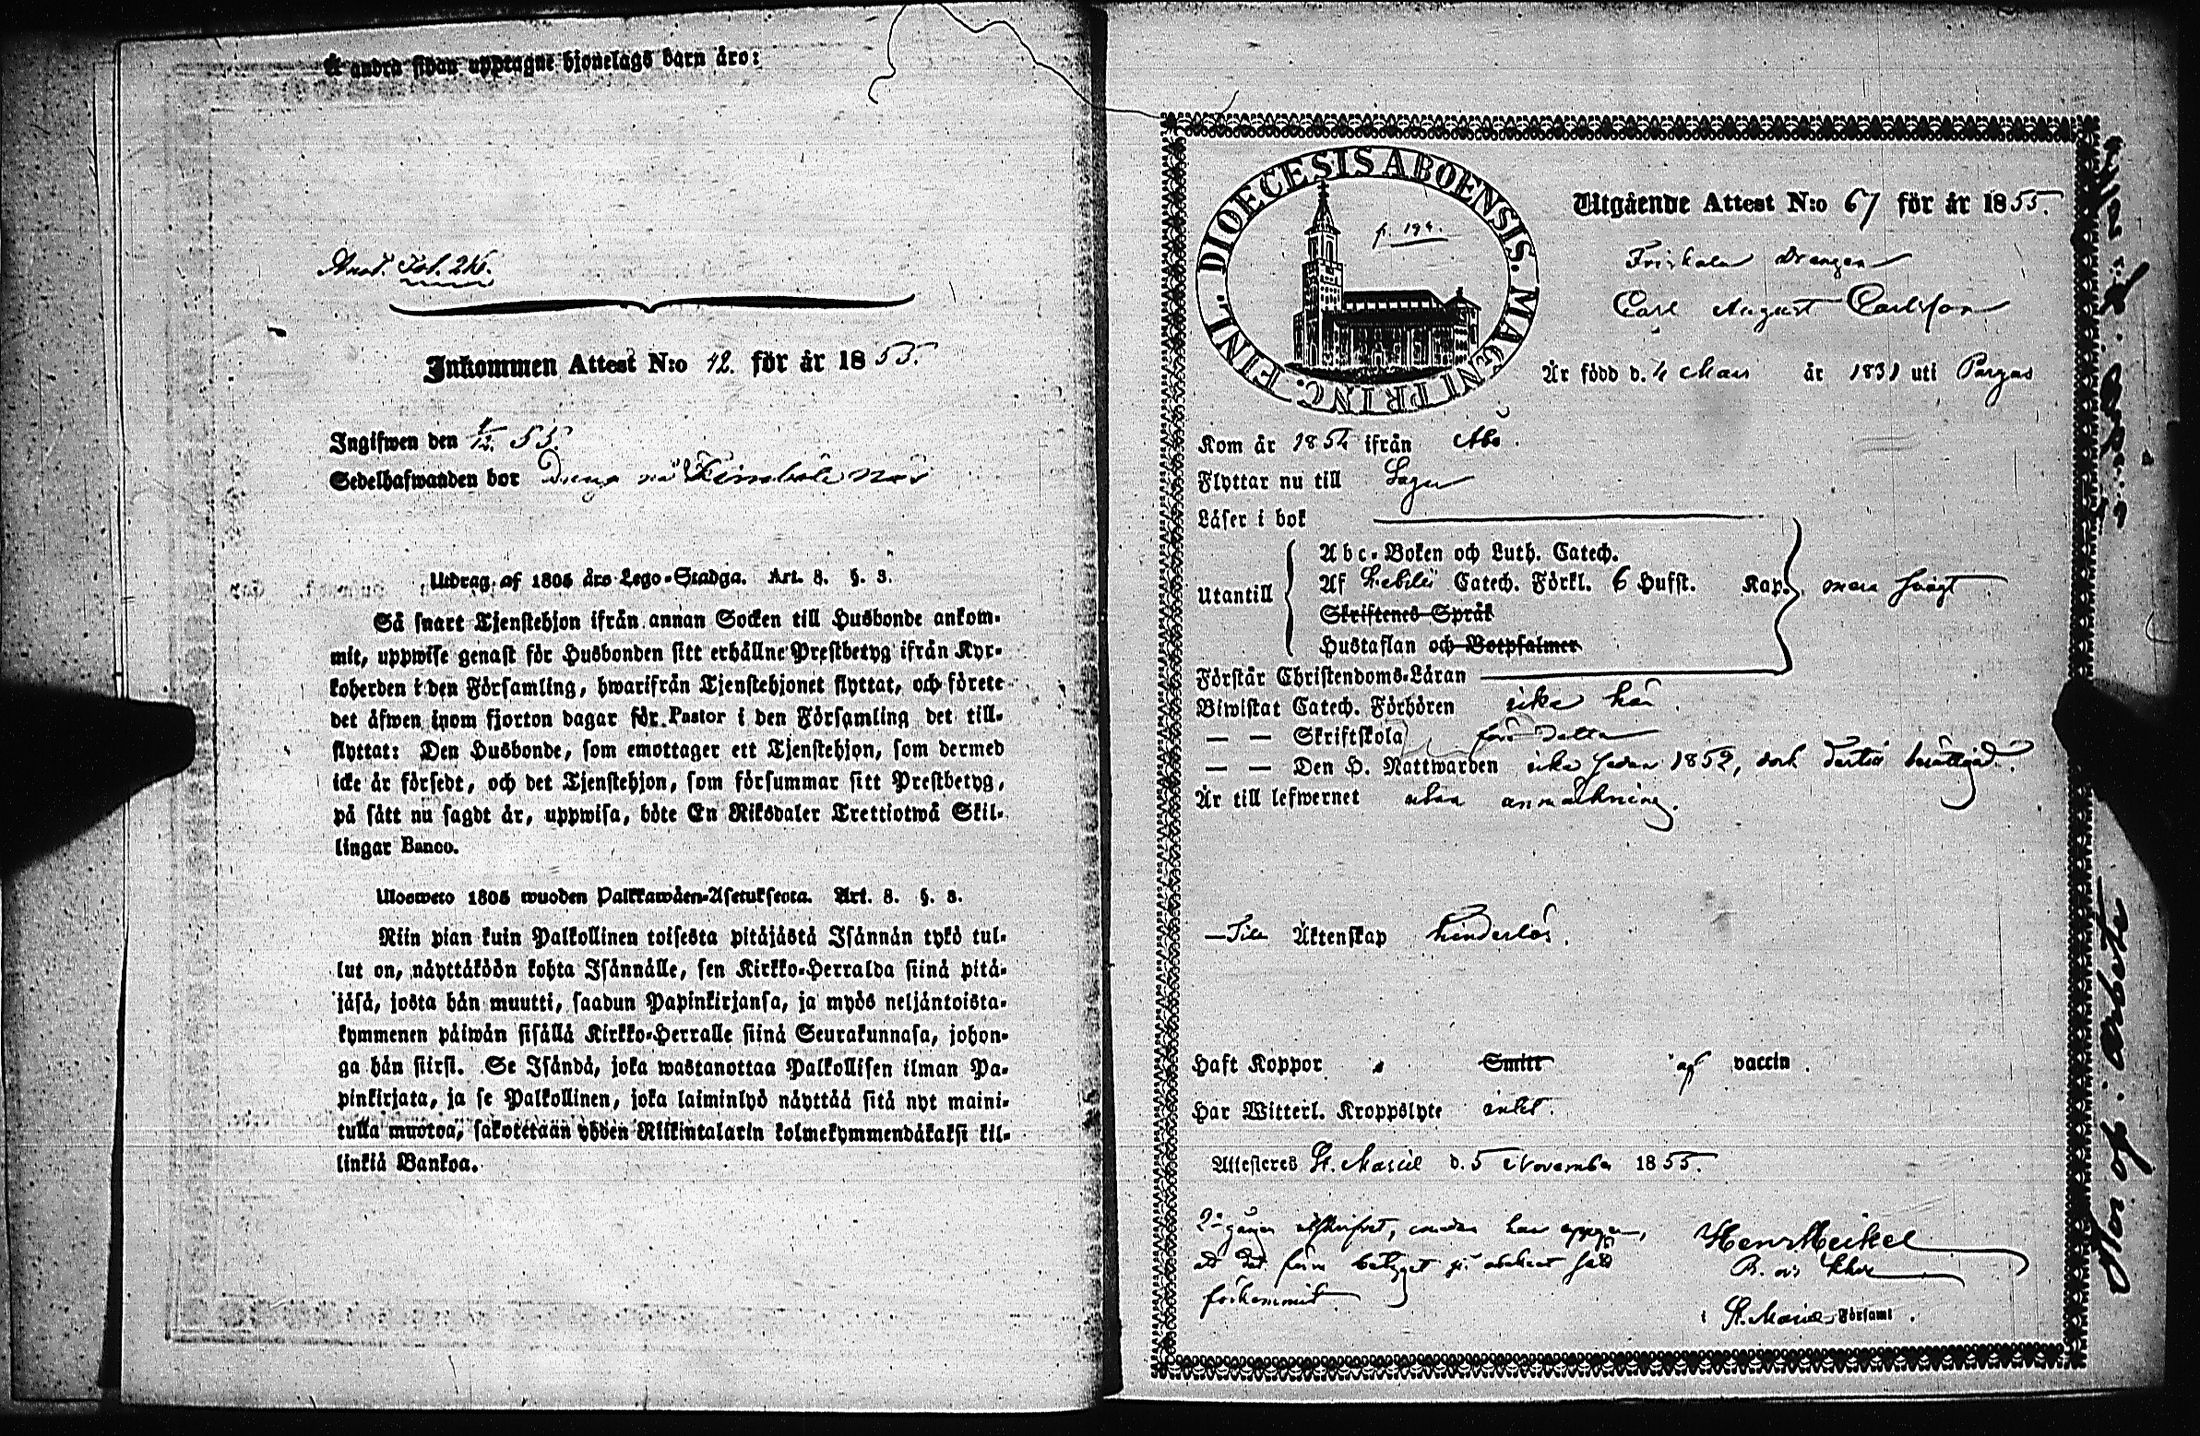 Å andra sidan upptagne hjonelags barn äro:
Fol. 216.
Inkommen Attest N:o 42. för år 1855.
Ingifwen den 1/12. 55.
Sedelhafwanden bor Dreng på Kimbole näs
Utdrag af 1805 års Lego-Stadga. Art. 8. §. 3.
Så snart Tjenstehjon ifrån annan Socken till Husbonde ankom-
mit, uppwise genast för Husbonden sitt erhållne Prestbetyg ifrån Kyr-
koherden i den Församling, hwarifrån Tjenstehjonet flyttat, och förete
det äfwen inom fjorton dagar för Pastor i den Församling det till-
flyttat: Den Husbonde, som emottager ett Tjenstehjon, som dermed
icke är försedt, och det Tjenstehjon, som försummar sitt Prestbetyg,
på sätt nu sagdt är, uppwisa, böte En Riksdaler Trettiotwå Skil-
lingar Banco.
Ulosweto 1805 wuoden Palkkawäen-Asetuksesta. Art. 8. §. 3.
Niin pian kuin Palkollinen toisesta pitäjästä Isännän tykö tul-
lut on, näyttäköön kohta Isännälle, sen Kirkko-Herralda siinä pitä-
jäsä, josta hän muutti, saadun Papinkirjansa, ja myös neljäntoista-
kymmenen päiwän sisällä Kirkko-Herralle siinä Seurakunnasa, johon-
ga hän siirsi. Se Isändä, joka wastanottaa Palkollisen ilman Pa-
pinkirjata, ja se Palkollinen, joka laiminlyö näyttää sitä nyt maini-
tulla muotoa, sakotetaan yhden Riikintalarin kolmekymmendäkaksi kil-
linkiä Bankoa.
DIOECESIS ABOENSIS. MAGNI PRINC. FINL.
p. 194.
Utgående Attest N:o 67 för år 1855.
Friskala Drängen
Carl August Carlsson
Är född d. 4 Mars år 1831 uti Pargas
Kom år 1854 ifrån Åbo.
Flyttar nu till Sagu
Läser i bok
Utantill
Abc-Boken och Luth. Catech.
Af Lebelii Catech. Förkl. 6 Hufst. Kap. svagt
Skriftenes Språk
Hustaflan och Botpsalmer
Förstår Christendoms-Läran
Biwistat Catech. Förhören icke här
— — Skriftskola före detta
— — Den H. Nattwarden icke sedan 1852, dock dertill berättigad.
Är till lefwernet utan anmärkning.
— Till Äktenskap hinderlös.
Haft Koppor Smitt af vaccin.
Har Witterl. Kroppslyte intet.
Attesteras St. Mariæ d. 5 November 1855.
2:a gången utskrifvet, emedan han uppger,
att det förra betyget är obekant huru
förkommit.
Henr Heikel
i St. Mariæ Församl.